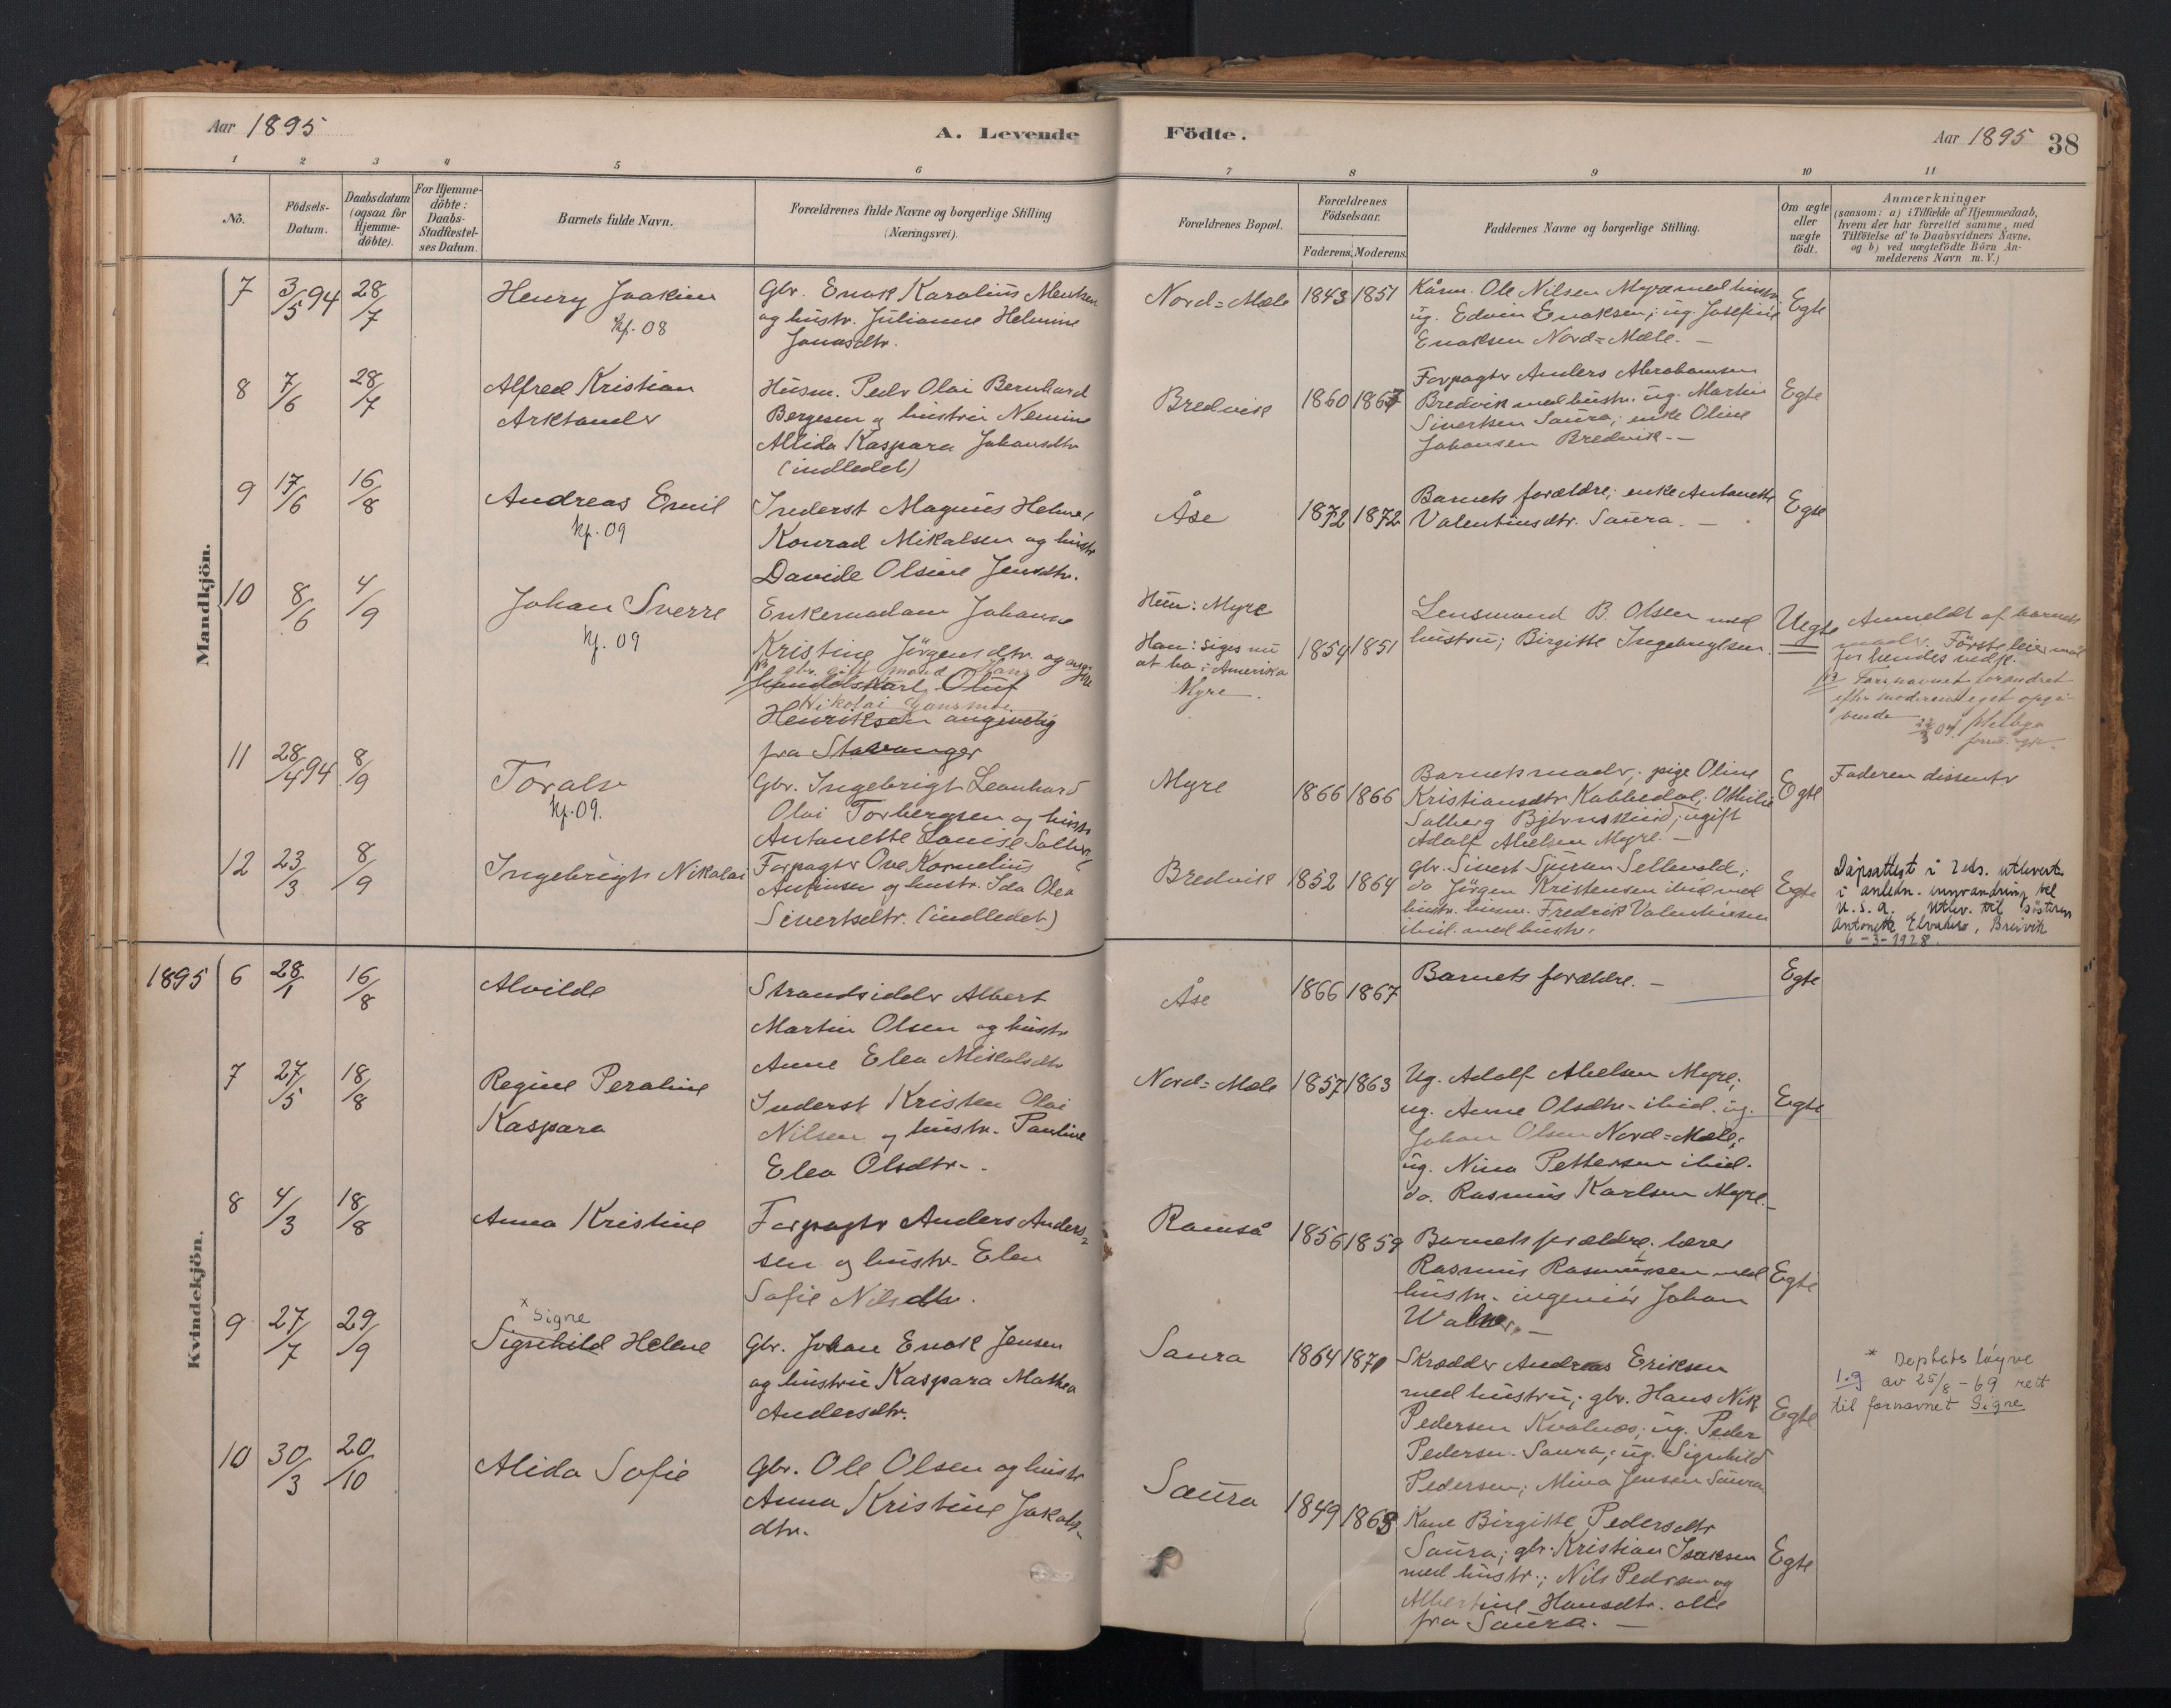 Aar 1895
A. Levende
Födte.
Aar 1895
38
1 2 3 4 5 6 7 8 9 10 11
No.
Födsels-
Datum.
Daabsdatum
(ogsaa for
Hjemme-
döbte).
For Hjemme-
döbte:
Daabs-
Stadfæstel-
ses Datum.
Barnets fulde Navn.
Forældrenes fulde Navne og borgerlige Stilling
(Næringsvei).
Forældrenes Bopæl.
Forældrenes
Födselsaar.
Faderens. Moderens.
Faddernes Navne og borgerlige Stilling.
Om ægte
eller
uægte
födt.
Anmærkninger
(saasom: a) i Tilfælde af Hjemmedaab,
hvem der har forrettet samme, med
Tilföielse af to Daabsvidners Navne,
og b) ved uægtefödte Börn An-
melderens Navn m. V.)
Mandkjön.
7 3/5 94 28/7
Henry Joakim
kf. 08
Gbr. Enok Karolius
og hustr. Julianne Helmine
Jonasdtr.
Nord=Mele 1843 1851
Kårm. Ole Nilsen Myre med hustr
ug. Edvin Enoksen; ug. Josefine
Enoksen Nord=Mele. —
Egte
8 7/6 28/7
Alfred Kristian
Arktander
Husm. Peder Olai Bernhard
Bergesen og hustru Nemine
Allida Kaspara Johansdtr
(indledet)
Bredvik 1860 1867
Forpagter Anders Abrahamsen
Bredvik med hustr. ug. Martin
Sivertsen Saura; enke Oline
Johansen Bredvik. —
Egte
9 17/6 16/8
Andreas Emil
kf. 09
Inderst Magnus Helmer
Konrad Mikalsen og hustr
Davide Olsine Jensdtr.
Åse 1872 1872
Barnets forældre; enke Antonette
Valentinsdtr. Saura. —
Egte
10 8/6 4/9
Johan Sverre
kf. 09
Enkemadam Johanne
Kristine Jörgensdtr. og
gbr. gift mand Hans
Oluf
Nikolai
Henriksen angivelig
fra Stavanger
Hun: Myre
Han: siges nu
at bo i Amerika
Myre
1859 1851
Lensmand B. Olsen med
hustru; Birgitte Ingebrigtsen
Uegte
Anmeldt af barnets
moder. Förste leiermål
for hendes vedk.
NB Farsnavnet forandret
efter moderens eget opgi-
vende
11 28/4 94 8/9
Toralv
kf. 09.
Gbr. Ingebrigt Leonhard
Olai Torbergsen og hustr
Antonette Louise Solberg
Myre 1866 1866
Barnets moder; pige Oline
Kristiansdtr Kabbedal; Othilie
Solberg Björnskind; ugift
Adolf Abelsen Myre. —
Egte
Faderen dissenter
12 23/3 8/9
Ingebrigt Nikolai
Forpagter Ove Kornelius
Anfinsen og hustr. Ida Olea
Sivertsdtr. (indledet)
Bredvik 1852 1864
gbr. Sivert Sjursen Sellevold;
do Jörgen Kristensen ibid med
hustr. husm. Fredrik Valentinsen
ibid. med hustr.
Egte
Dåpsattest i 2 eks. utlevert
i anledn. innvandring til
U. S. A. Utlev. til søsteren
Antonette , Breivik
6-3-1928.
Kvindekjön.
1895 6 28/1 16/8
Alvilde
Strandsidder Albert
Martin Olsen og hustr
Anne Elea Mikalsdtr
Åse 1866 1867
Barnets forældre. —
Egte
7 27/5 18/8
Regine Peraline
Kaspara
Inderst Kristen Olai
Nilsen og hustr. Pauline
Elea Olsdtr.
Nord=Mele 1857 1863
Ug. Adolf Abelsen Myre;
ug. Anne Olsdtr. ibid. ug.
Johan Olsen Nord=Mele;
ug. Nina Pettersen ibid.
do. Rasmus Karlsen Myre. —
Egte
8 4/3 18/8
Anna Kristine
Forpagter Anders Anders=
sen og hustr. Elen
Sofie Nilsdtr.
Ramså 1856 1859
Barnets forældre, lærer
Rasmus Rasmussen med
hustr. ingeniör Johan
Egte
9 27/7 29/9
x Signe
Signhild Helene
Gbr. Johan Enok Jensen
og hustru Kaspara Mathea
Andersdtr.
Saura 1864 1870
Skrædder Andreas Eriksen
med hustru; gbr. Hans Nik
Pedersen Kvalnes; ug. Peder
Pedersen Saura; ug. Signhild
Pedersen; Mina Jensen Saura
Egte
* Deptets løyve
1.g av 25/8-69 rett
til fornavnet Signe
10 30/3 20/10
Alida Sofie
Gbr. Ole Olsen og hustr
Anna Kristine Jakobs-
dtr.
Saura 1849 1863
Kone Birgitte Pedersdtr
Saura; gbr. Kristian Isaksen
med hustr.; Nils Pedersen og
Albertine Hansdtr. alle
fra Saura. —
Egte